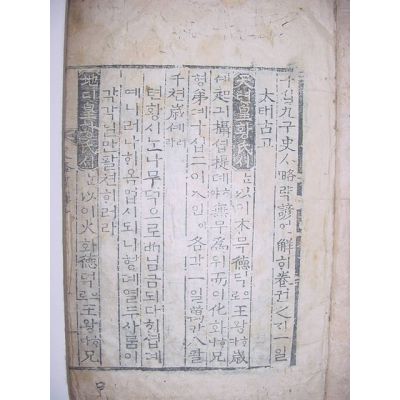 十십九구史ᄉ略략諺언解ᄒᆡ卷권之지一일
太태古고
天텬皇황氏시는以이木무德덕으로王왕ᄒᆞ야歲
셰起긔攝셥提뎨ᄒᆞ야無무爲위而이化화ᄒᆞ야兄
형弟뎨十십二이人인이各각一일萬만八팔
千쳔歲셰
텬황시ᄂᆞᆫ나무덕으로 님금되다ᄒᆡ셥뎨
예니러나ᄒᆞ욤업시되니형뎨열두사ᄅᆞᆷ이
각각일만팔쳔ᄒᆡ러라
地디皇황氏시는以이火화德덕으로王왕ᄒᆞ야兄